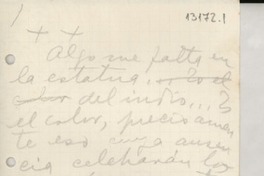 13172.1
Algo me falta en
la estatua.
del indio...
el color, precisamen
te eso cuya ausen
cia celebrarán los